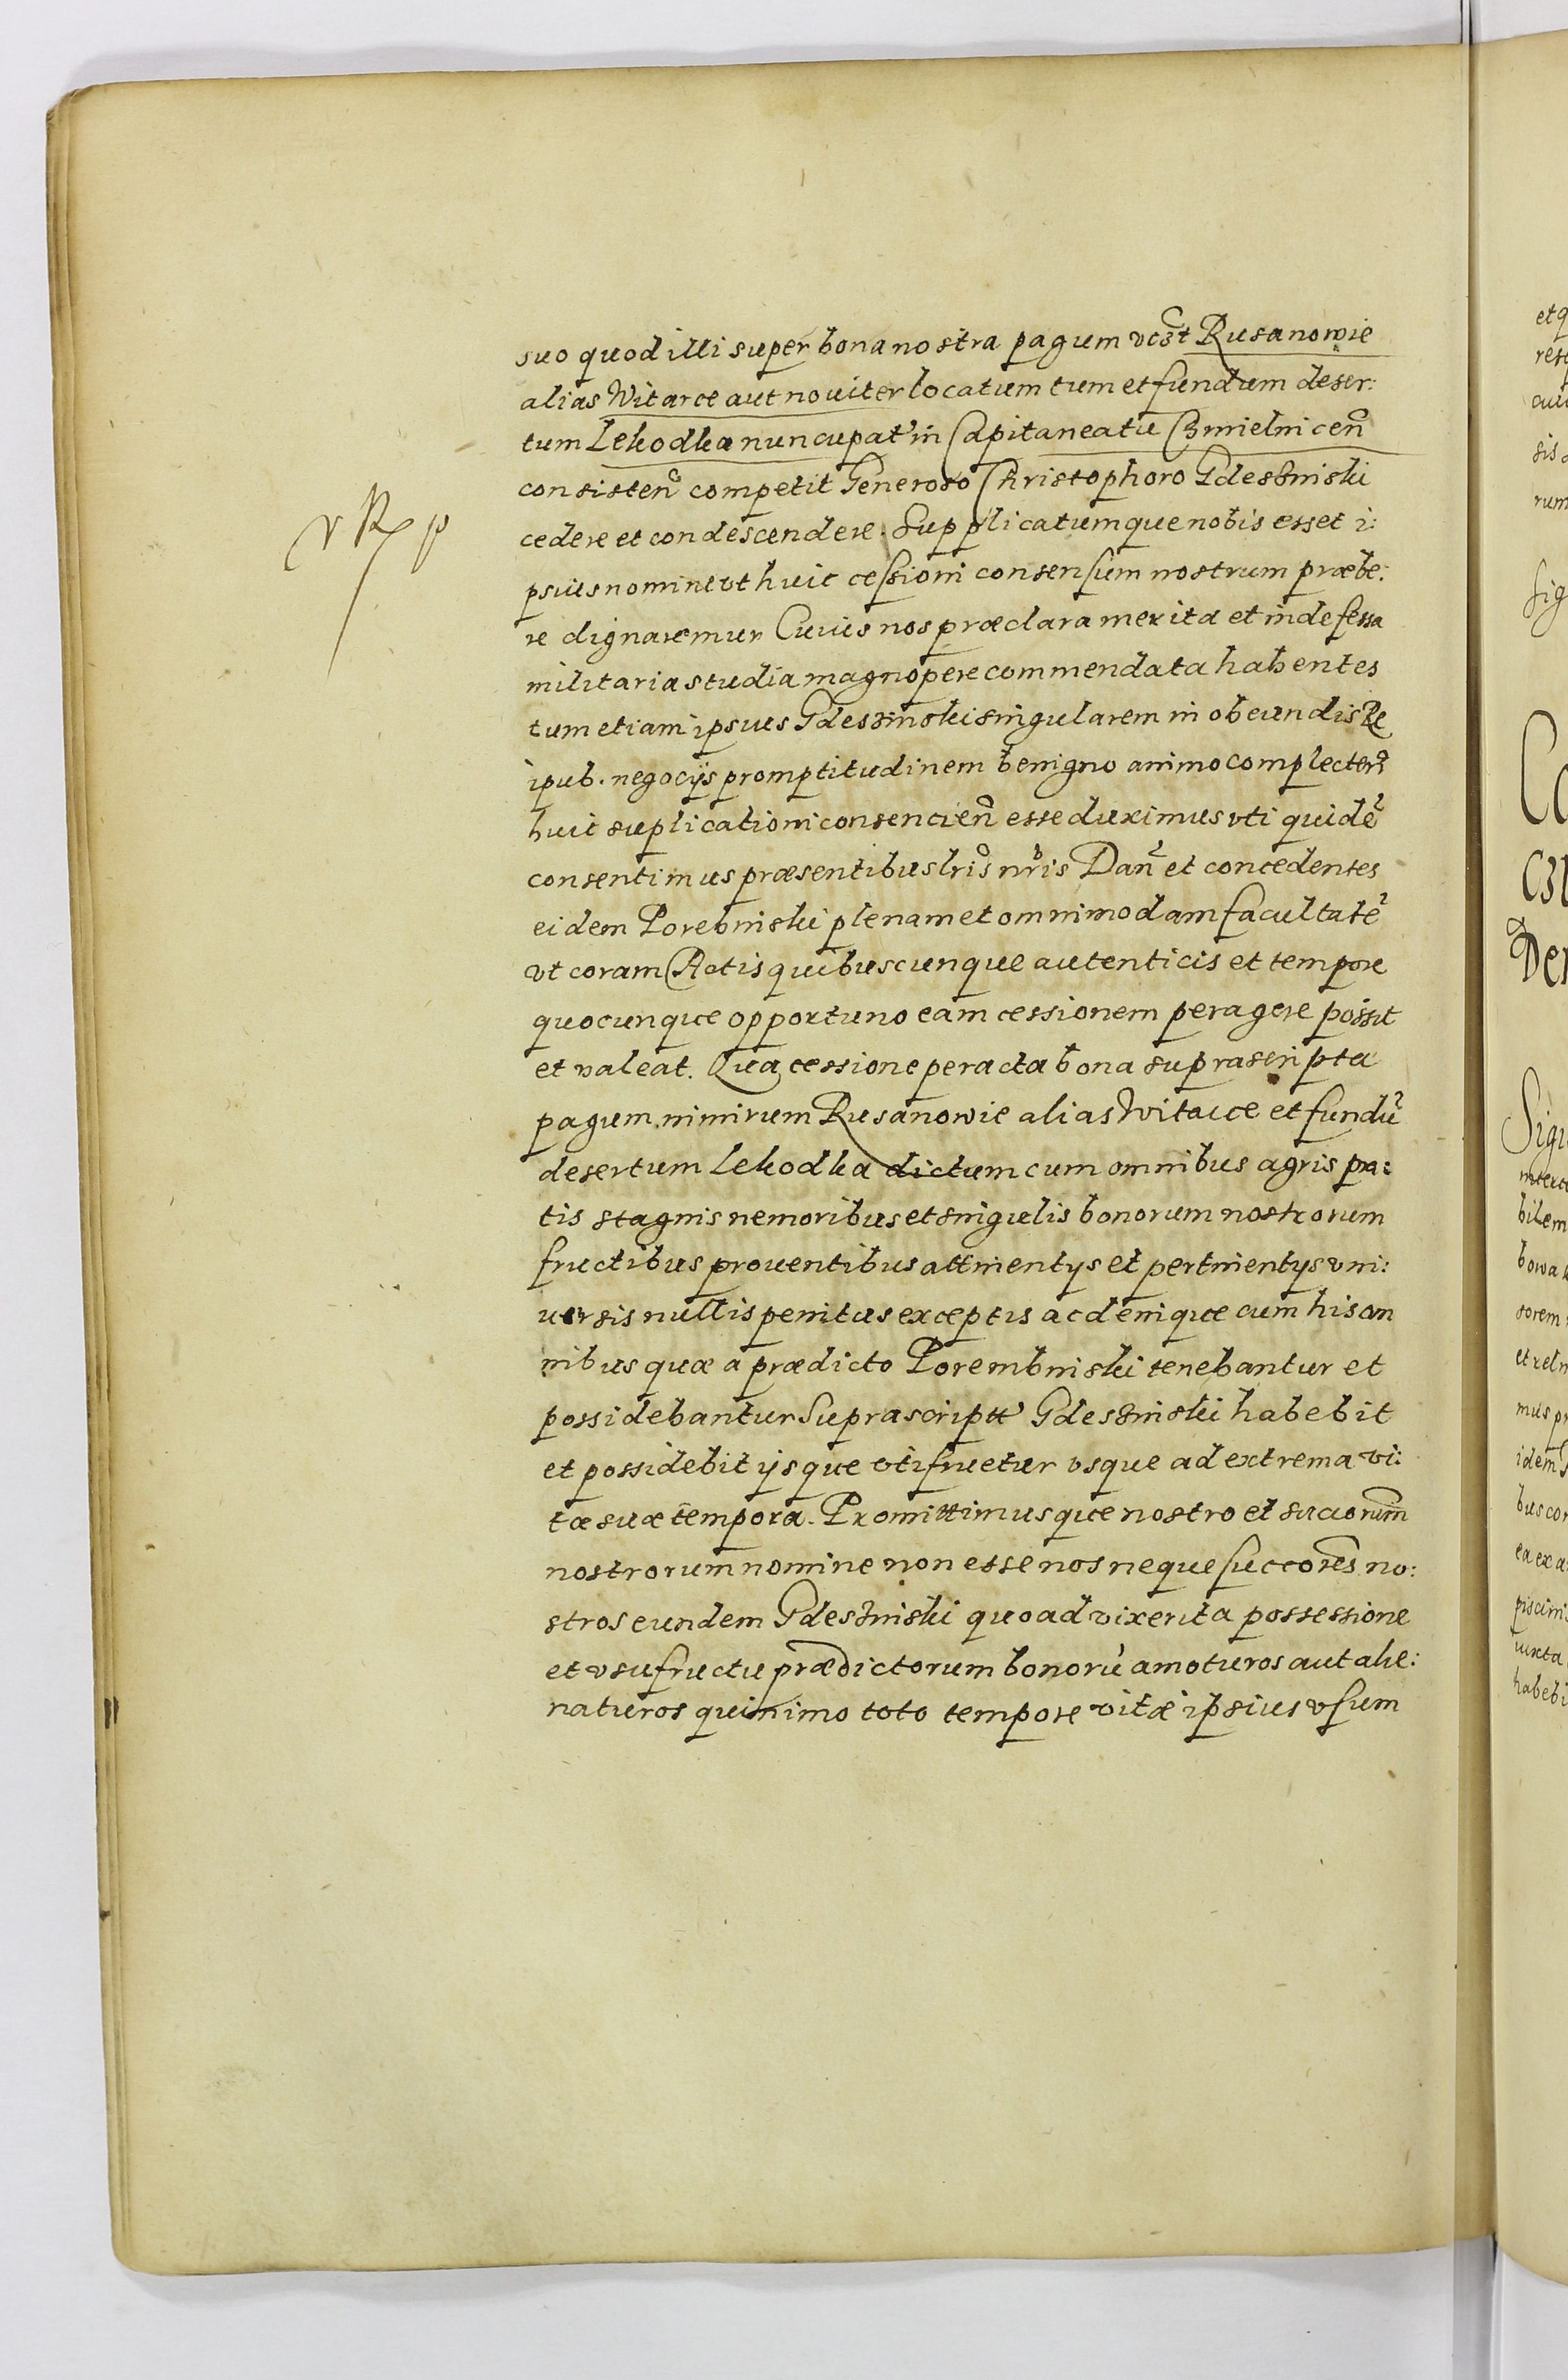 suo quod illi super bona nostra pagum vcȝt Rusanowie
alias Witarce aut nouiter locatum tum et fundum deser:
tum Lekodka nuncupat in Capitaneatu Chmielnicen
consisten competit Generoso Christophoro Gdeszinski
cedere et condescendere. Supplicatumque nobis esset i:
psius nomine vt huic cessioni consensum nostrum præbe:
re dignaremur Cuius nos præclara merita et indefessa
militaria studia magnopere commendata habentes
tum etiam ipsius Gdeszinski singularem in obeundis Re
ipub. negocijs promptitudinem benigno animo complecten
huic suplicationi consencien esse duximus vti quidē
consentimus præsentibus lris nris Dan et concedentes
eidem Porebinski plenam et omnimodam facultatē
vt coram Actis quibuscunque autenticis et tempore
quocunque opportuno eam cessionem peragere possit
et valeat. Qua cessione peracta bona suprascripta
pagum nimirum Rusanowie alias Witarce et fundū
desertum Lekodka dictum cum omnibus agris pra:
tis stagnis nemoribus et singulis bonorum nostrorum
fructibus prouentibus attinentijs et pertinentijs vni:
uersis nullis penitus exceptis ac denique cum his om
nibus quæ a prædicto Porembinski tenebantur et
possidebantur Suprascriptt Gdeszinski habebit
et possidebit ijsque vti fruetur vsque ad extrema vi:
tæ suæ tempora. Promittimusque nostro et succorum
nostrorum nomine non esse nos neque succores no:
stros eundem Gdeszinski quoad vixerit a possessione
et vsufructu prædictorum bonorū amoturos aut alie:
naturos quinimo toto tempore vitæ ipsius vsum